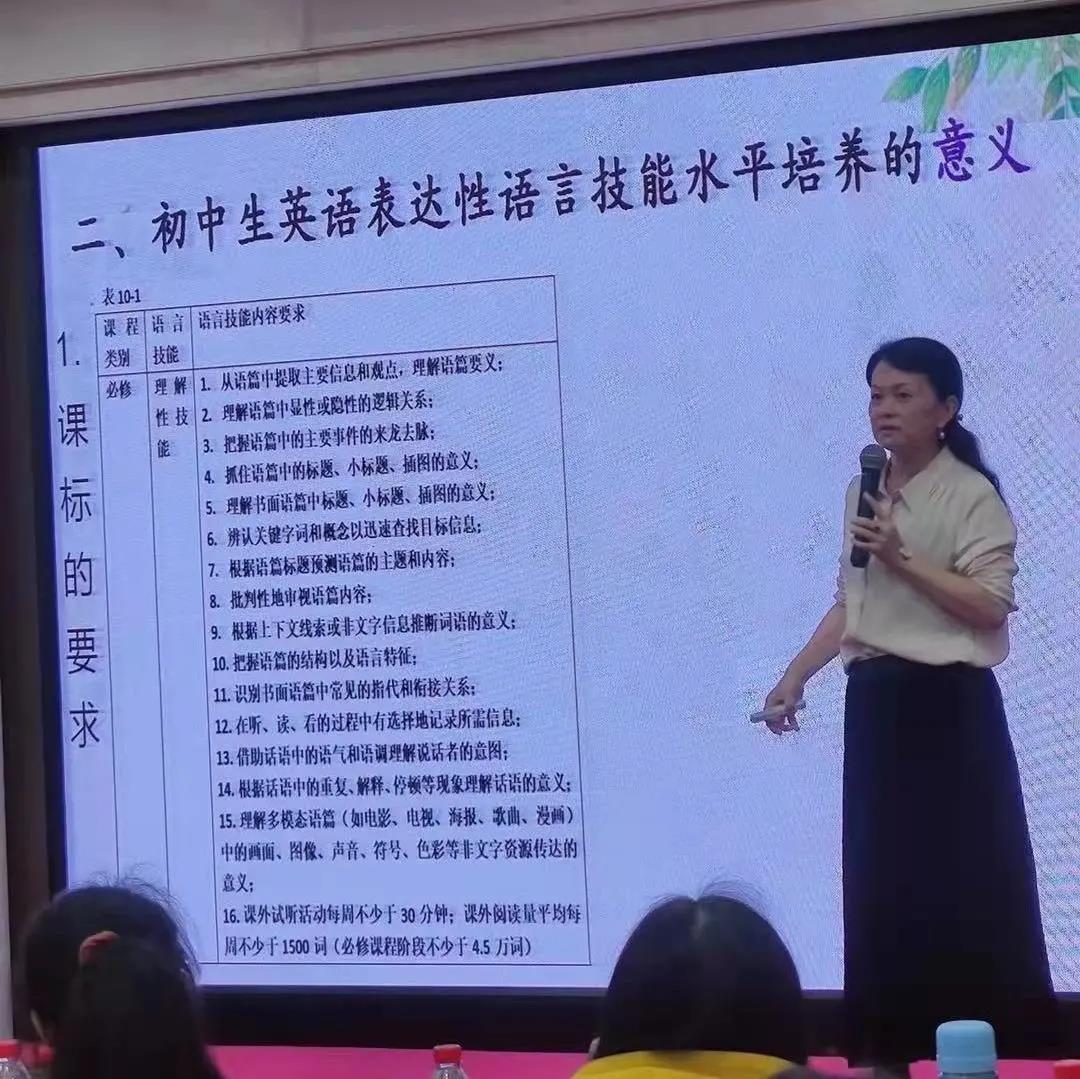 二、初中生英语表达性语言技能水平培养的意义
1.课标的要求
表10-1
课程类别
语言技能
语言技能内容要求
必修
理解性技能
1. 从语篇中提取主要信息和观点，理解语篇要义；
2. 理解语篇中显性或隐性的逻辑关系；
3. 把握语篇中的主要事件的来龙去脉；
4. 抓住语篇中的标题、小标题、插图的意义；
5. 理解书面语篇中标题、小标题、插图的意义；
6. 辨认关键字词和概念以迅速查找目标信息；
7. 根据语篇标题预测语篇的主题和内容；
8. 批判性地审视语篇内容；
9. 根据上下文线索或非文字信息推断词语的意义；
10. 把握语篇的结构以及语言特征；
11. 识别书面语篇中常见的指代和衔接关系；
12. 在听、读、看的过程中有选择地记录所需信息；
13. 借助话语中的语气和语调理解说话者的意图；
14. 根据话语中的重复、解释、停顿等现象理解话语的意义；
15. 理解多模态语篇（如电影、电视、海报、歌曲、漫画）
中的画面、图像、声音、符号、色彩等非文字资源传达的
意义；
16. 课外试听活动每周不少于30分钟；课外阅读量平均每
周不少于1500词（必修课程阶段不少于4.5万词）